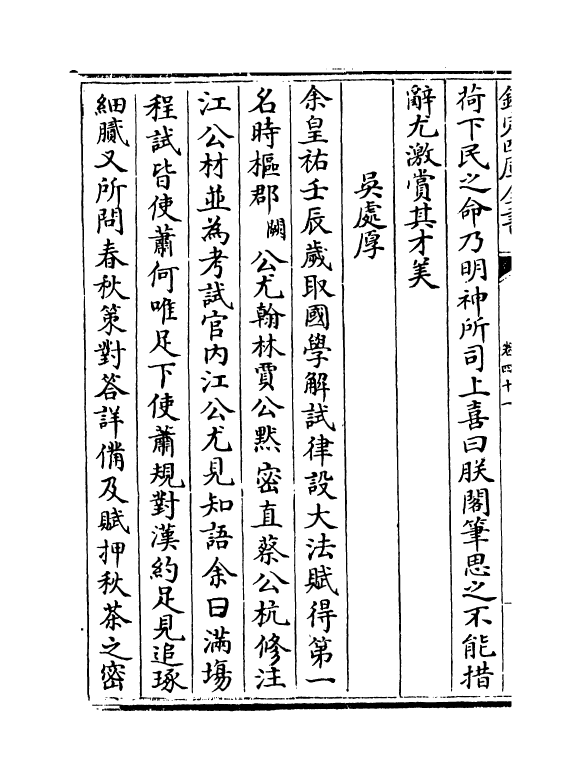 欽定四庫全書
卷四十一
荷下民之命乃明神所司上喜曰朕閣筆思之不能措
辭尤激賞其才美
吳處厚
余皇祐壬辰歲取國學解試律設大法賦得第一
名時樞郡闕公尤翰林賈公黙密直蔡公杭修注
江公材並為考試官内江公尤見知語余曰滿塲
程試皆使蕭何唯足下使蕭規對漢約足見追琢
細膩又所問春秋策對答詳備及賦押秋荼之密